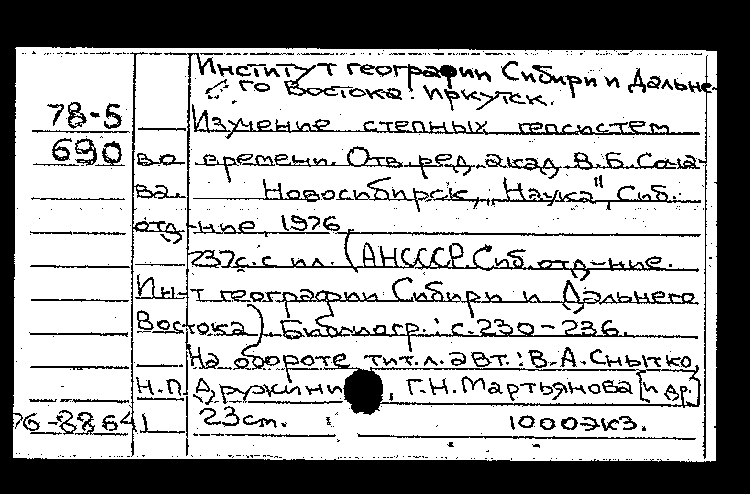 Институт географии Сибири и Дальне-
го Востока. Иркутск.
78-5 Изучение степных геосистем
690 во времени. Отв. ред. акад. В.Б. Соча-
ва. Новосибирск, „Наука", Сиб.
отд-ние, 1976.
237с. с ил. (АНСССР. Сиб. отд-ние.
Ин-т географии Сибири и Дальнего
Востока). Библиогр.: с. 230-236.
На обороте тит. л. авт.: В.А. Снытко,
Н.П. Дружини , Г.Н. Мартьянова [и др.]
23см. 1000экз.